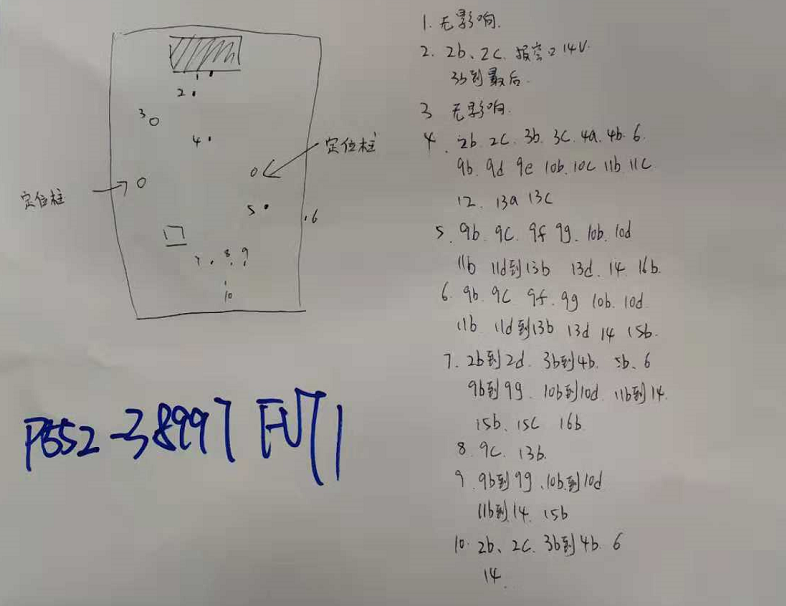 1
2.
3
4.
定位柱
定位柱
5
6
7 8 9
10
P552-38997 FUT1
1. 无影响.
2. 2b、2c. 报警: 14V.
3b到最后.
3 无影响.
4. 2b. 2c. 3b. 3c. 4a. 4b. 6.
9b. 9d 9e 10b. 10c 11b 11c
12. 13a 13c
5. 9b. 9c. 9f 9g. 10b. 10d
11b 11d到13b 13d. 14. 16b.
6. 9b. 9c 9f. 9g 10b. 10d.
11b 11d到13b 13d 14 15b.
7. 2b到2d. 3b到4b. 5b、6
9b到9g. 10b到10d. 11b到14.
15b、15c 16b.
8. 9c. 13b.
9. 9b到9g、10b到10d
11b到14. 15b
10. 2b、2c. 3b到4b. 6
14.